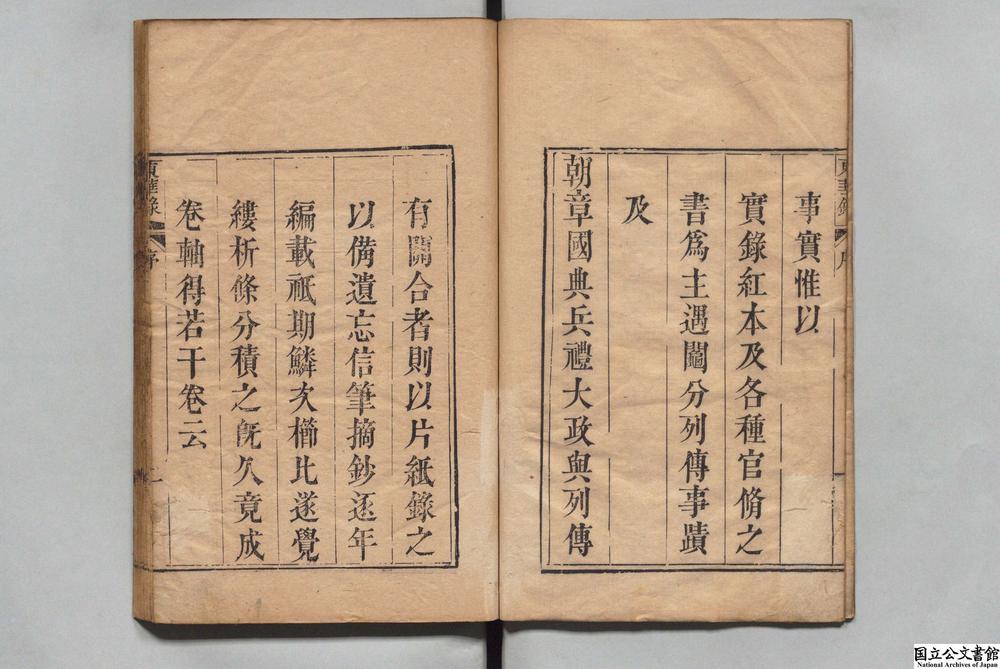 事實惟以
實錄紅本及各種官脩之
書爲主遇鬮分列傳事蹟
及
朝章國典兵禮大政與列傳
有關合者則以片紙錄之
以備遺忘信筆摘鈔逐年
編載祇期鱗次櫛比遂覺
縷析條分積之旣久竟成
卷軸得若干卷云
東華錄
序
国立公文書館
National Archives of Japan